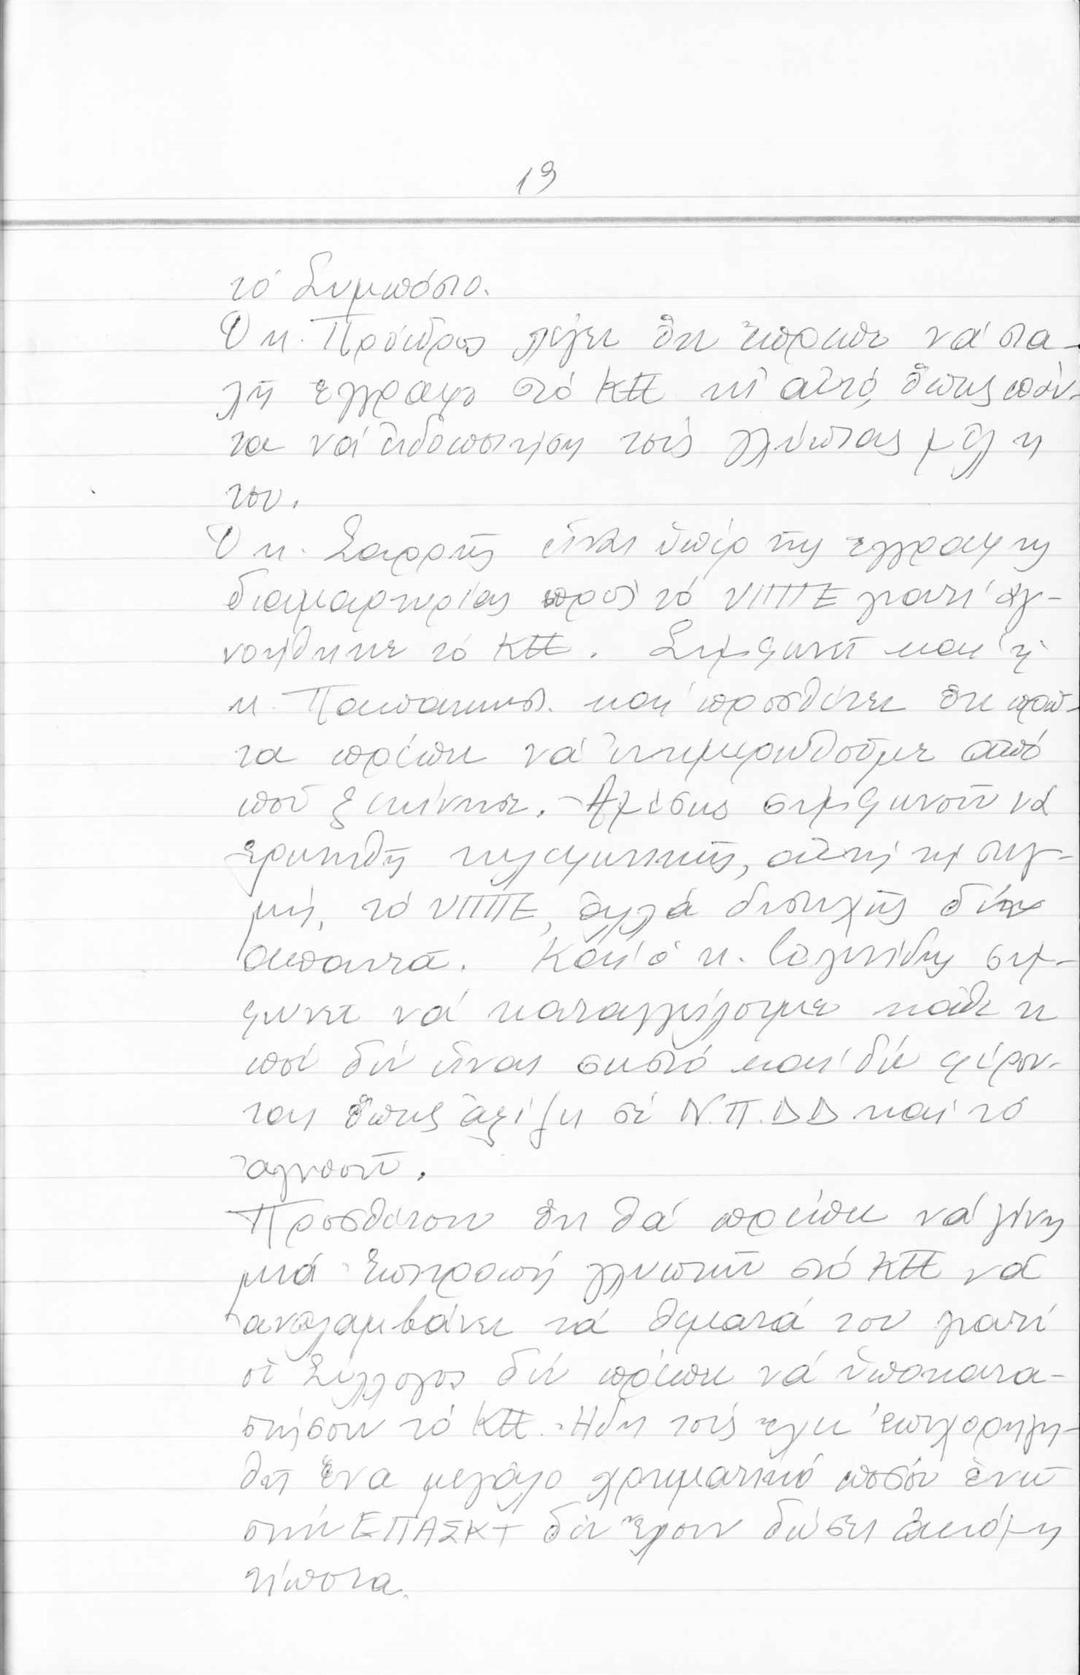 19
τό Συμπόσιο.
Ὁ κ. Πρόεδρος λέγει ὅτι ἔπρεπε νά στα-
λῆ ἔγγραφο στό ΚΤΕ κι αὐτό, ὅπως πάν-
τα νά εἰδοποιήση τούς γλύπτας μέλη
του.
Ὁ κ. Σαρρῆς εἶναι ὑπέρ τῆς ἔγγραφης
διαμαρτυρίας πρός τό ΥΠΠΕ γιατί ἀγ-
νοήθηκε τό ΚΤΕ. Συμφωνεῖ καί ἡ
κ. καί προσθέτει ὅτι πρῶ-
τα πρέπει νά ἐνημερωθοῦμε ἀπό
ποῦ ξεκίνησε. Ἀμέσως συμφωνοῦν νά
ἐρωτηθῆ τηλεφωνικῶς, αὐτή τή στιγ-
μή, τό ΥΠΠΕ, ἀλλά δυστυχῶς δέν
ἀπαντᾶ. Καί ὁ κ. συμ-
φωνεῖ νά καταγγείλουμε κάθε τι
πού δέν εἶναι σωστό καί δέν φέρον-
ται ὅπως ἀξίζει σέ Ν.Π.ΔΔ καί τό
ἀγνοοῦν.
Προσθέτουν ὅτι θά πρέπει νά γίνη
μιά Ἐπιτροπή γλυπτῶν στό ΚΤΕ νά
ἀναλαμβάνει τά θέματά του γιατί
οἱ Σύλλογοι δέν πρέπει νά ὑποκατα-
στήσουν τό ΚΤΕ. Ἤδη τούς ἔχει ἐπιχορηγη-
θῆ ἕνα μεγάλο χρηματικό ποσόν ἐνῶ
στήν ΕΠΑΣΚΤ δέν ἔχουν δώσει ἀκόμη
τίποτα.